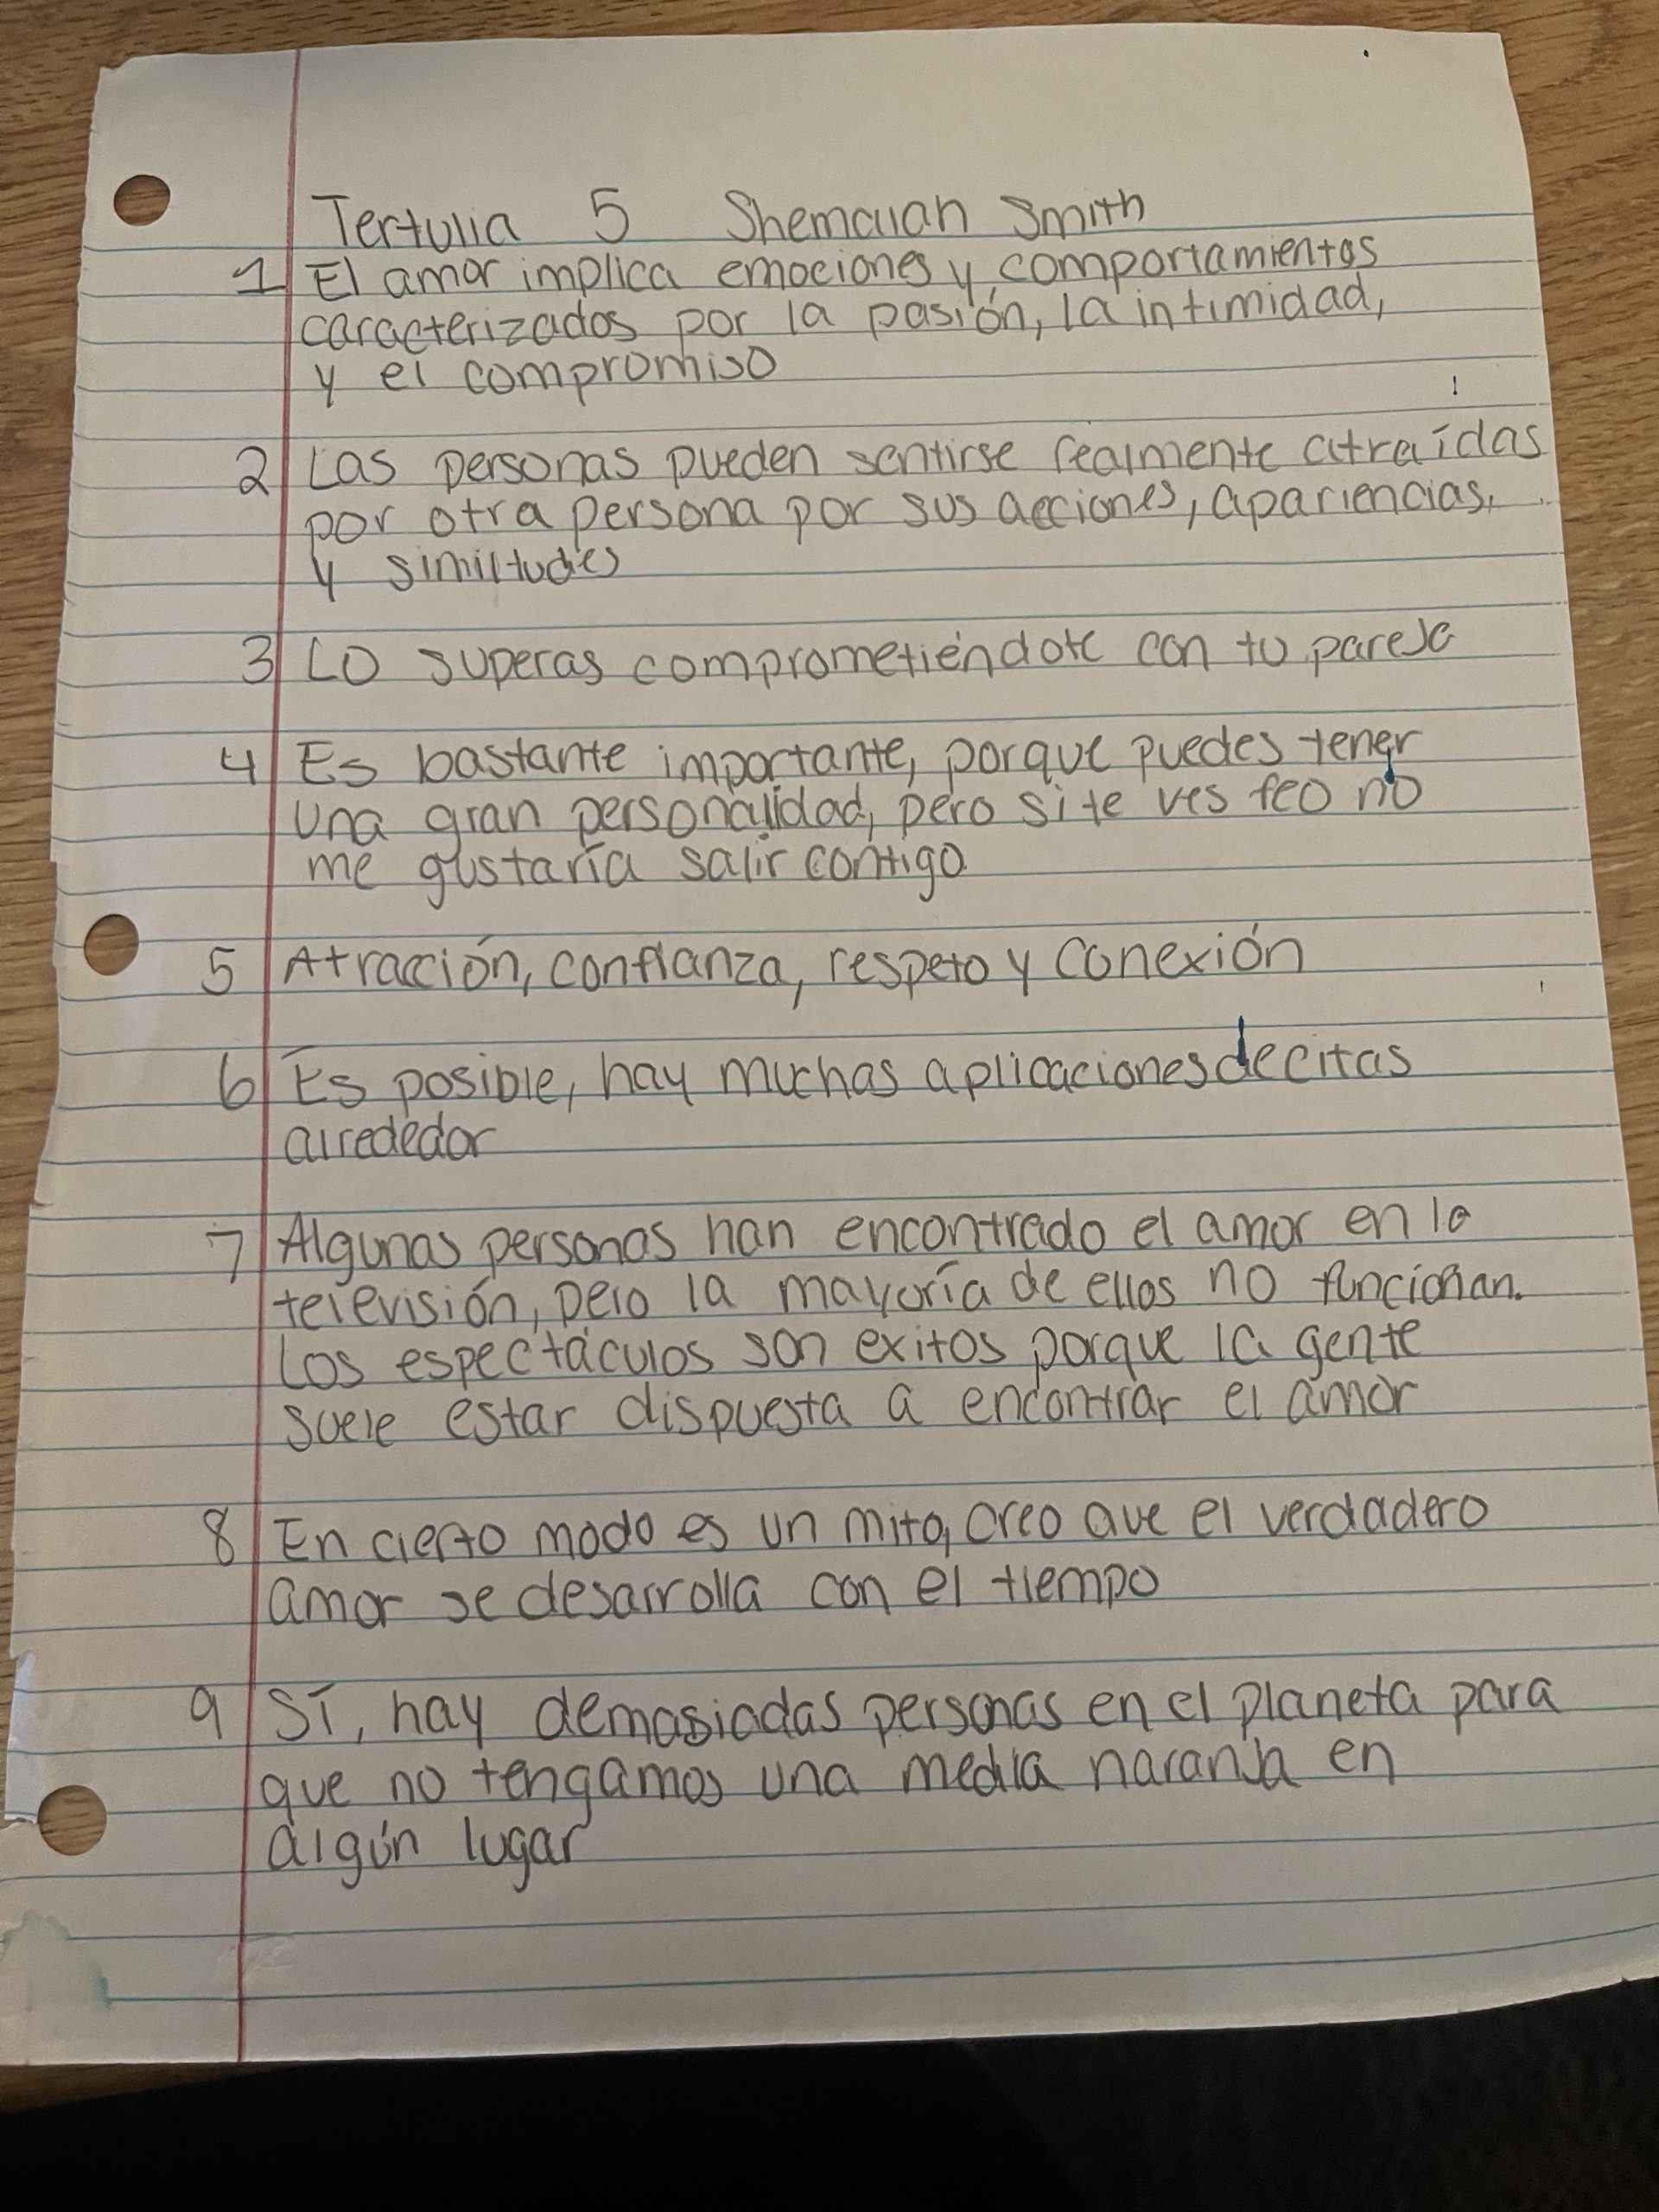 Tertulia 5 Shemaiah Smith
1 El amor implica emociones y comportamientos
caracterizados por la pasión, la intimidad,
y el compromiso
2 Las personas pueden sentirse realmente atraídas
por otra persona por sus acciones, apariencias,
y similtudes
3 Lo superas comprometiéndote con tu pareja
4 Es bastante importante, porque puedes tener
una gran personalidad, pero si te ves feo no
me gustaría salir contigo
5 Atracción, confianza, respeto y conexión
6 Es posible, hay muchas aplicaciones de citas
alrededor
7 Algunas personas han encontrado el amor en la
televisión, pero la mayoría de ellos no funcionan.
Los espectáculos son exitos porque la gente
suele estar dispuesta a encontrar el amor
8 En cierto modo es un mito, creo que el verdadero
amor se desarrolla con el tiempo
9 Sí, hay demasiadas personas en el planeta para
que no tengamos una media naranja en
algún lugar